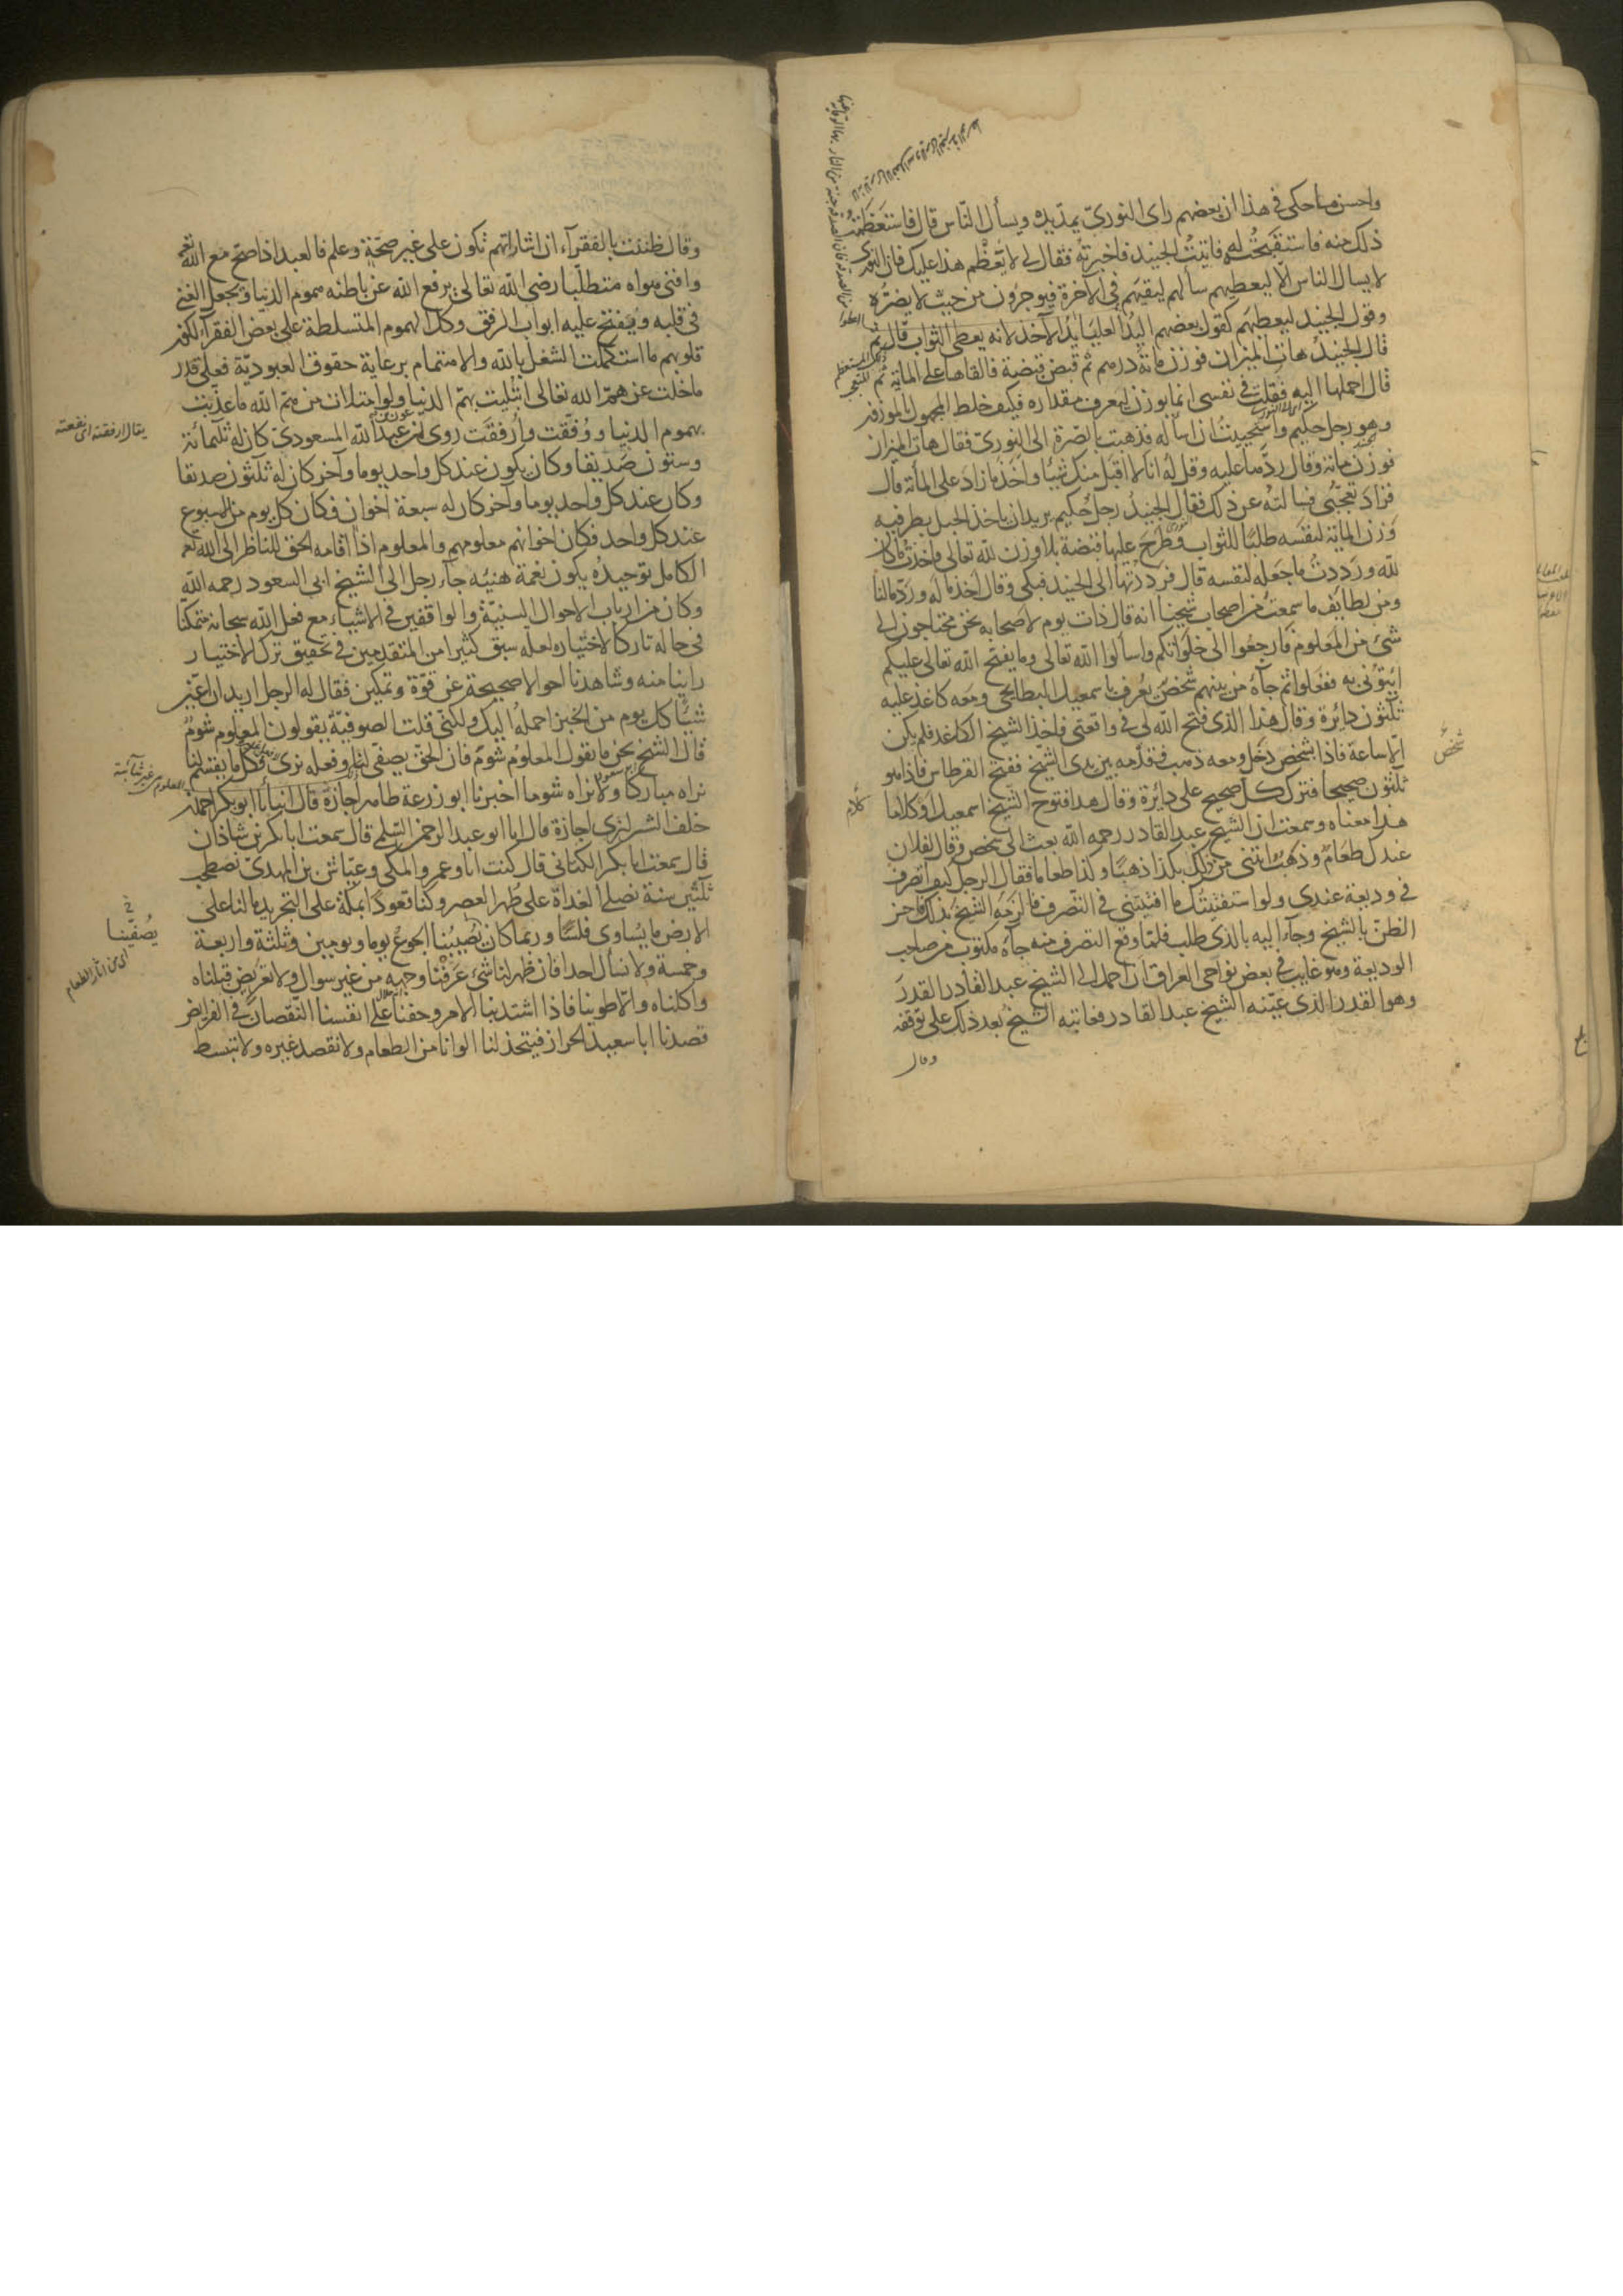 واحسن ما حكي في هذا ان بعضهم راى النوريّ يمدّ يده ويسأل النّاس قال فاستعظمتُ
ذلك منه فاستقبحتُ له فاتيتُ الجنيد فاخبرته فقال لي لا يعظم هذا عليك فان النوري
لا يسال الناس الا ليعطيهم سألهم ليثيبهم في الآخرة فيوجرون من حيث لا يضرّه
وقول الجنيد ليعطيهم كقول بعضهم اليدُ العليا يدُ الآخذ لانه يعطى الثواب قال ثم
قال الجنيدُ هات الميزان فوزن مائة درهم ثم قبض قبضة فالقاها على المائة ثم
قال احملها اليه فقلت في نفسي انما يوزن ليعرف مقداره فكيف خلط المجهول بالموزون
وهو رجل حكيم واستحييتُ ان اسأله فذهبت بالصّرة الى النوريّ فقال هات الميزان
فوزن مائة وقال ردّها عليه وقل له انا لا اقبل منك شيئا واخذ ما زاد على المائة قال
فزاد تعجّبي فسالته عن ذلك فقال الجنيدُ رجل حكيم يريد ان ياخذ الحبل بطرفيه
وزن المائة لنفسه طلبًا للثواب وطرح عليها قبضة بلا وزن لله تعالى فاخذتُ ما كان
لله ورددتُ ما جعله لنفسه قال فرددتها الى الجنيد فبكى وقال اخذ ماله وردّ مالنا
ومن لطايف ما سمعتُ من اصحاب شيخنا انه قال ذات يوم لاصحابه نحن محتاجون الى
شئ من المعلوم فارجعوا الى خلواتكم واسالوا الله تعالى وما يفتح الله تعالى عليكم
ائتوني به ففعلوا ثم جآءه من بينهم شخص يُعرف باسمعيل البطايحي ومعه كاغذ عليه
ثلثون دايرة وقال هذا الذي فتح الله لي في واقعتي فاخذ الشيخ الكاغذ فلم يكن
الا ساعة فاذا بشخص دخل ومعه ذهب فقدمه بين يدى الشيخ ففتح القرطاس فاذا هو
ثلثون صحيحا فترك كل صحيح على دايرة وقال هذا فتوح الشيخ اسمعيل او كلاما
هذا معناه وسمعت ان الشيخ عبد القادر رحمه الله بعث الى شخص وقال لفلان
عندك طعام وذهب ائتني من ذلك بكذا ذهبًا وكذا طعاما فقال الرجل كيف اتصرف
في وديعة عندي ولو استفتيتُك ما افتيتني في التصرف فالزمه الشيخ بذلك فاحسن
الظنّ بالشيخ وجآء اليه بالذي طلب فلمّا وقع التصرف منه جآءه مكتوب من صاحب
الوديعة وهو غايب في بعض نواحي العراق ان احمل الى الشيخ عبد القادر القدر
وهو القدر الذى عيّنه الشيخ عبد القادر فعاتبه الشيخُ بعد ذلك على توقفه
وقال
شخصٌ
كلام
وقال ظننت بالفقرآء ان اشاراتهم تكون على غير صحّة وعلم فالعبد اذا صحّ مع الله
وافنى هواه متطلّبا رضى الله تعالى يرفع الله عن باطنه هموم الدنيا ويجعل الغنى
في قلبه ويفتح عليه ابواب الرفق وكل الهموم المتسلطة على بعض الفقرآء لكون
قلوبهم ما استكملت الشغل بالله والاهتمام برعاية حقوق العبوديّة فعلى قدر
ما خلت عن همّ الله تعالى ابتليت بهمّ الدنيا ولو امتلات من همّ الله ما عذّبت
بهموم الدنيا ووُفّقت وارفقت روى ان عون بن عبد الله المسعوديّ كان له ثلثمائة
وستّون صديقا وكان يكون عند كل واحد يوما وآخر كان له ثلثون صديقا
وكان عند كل واحد يوما وآخر كان له سبعة اخوان فكان كل يوم من الاسبوع
عند كل واحد فكان اخوانهم معلومهم والمعلوم اذا اقامه الحق للناظر الى الله
الكامل توحيدُه يكون نعمة هنيئه جآء رجل الى الشيخ ابى السعود رحمه الله
وكان من ارباب الاحوال السنيّة والواقفين في الاشياء مع فعل الله سبحانه متمكنا
في حاله تاركا لاختياره لعله سبق كثيرا من المتقدمين في تحقيق ترك الاختيار
راينا منه وشاهدنا احوالا صحيحة عن قوّة وتمكين فقال له الرجل اريد ان اعين
شيئًا كل يوم من الخبز احمله اليك ولكني قلت الصوفيّة يقولون المعلوم شوم
قال الشيخ نحن ما نقول المعلوم شوم فان الحق يصفّى لنا وفعله نرى فكل ما يقسم لنا
نراه مباركا ولا نراه شوما اخبرنا ابو زرعة طاهر اجازة قال انبانا ابو بكر احمد بن
خلف الشيرازى اجازة قال انا ابو عبد الرحمن السّلمي قال سمعت ابا بكر بن شاذان
قال سمعت ابا بكر الكتّاني قال كنت انا وعمرو المكى وعيّاش بن المهدىّ نصطحب
ثلثين سنة نصلي الغداة على طهر العصر وكنا قعودًا بمكّة على التجريد مالنا على
الارض ما يُساوى فلسًا وربما كان يُصيبُنا الجوعُ يوما ويومين وثلثة واربعة
وخمسة ولا نسأل احدا فان ظهر لنا شئ عرفنا وجهه من غير سوال ولا تعريض قبلناه
واكلناه والّا طوينا فاذا اشتد بنا الامر وخفنا على انفسنا النقصان في الفرايض
قصدنا ابا سعيد الخراز فيتخذ لنا الوانا من الطعام ولا نقصد غيره ولا نتبسط
يقال ارفقته اى نفعته
يُصفّينا